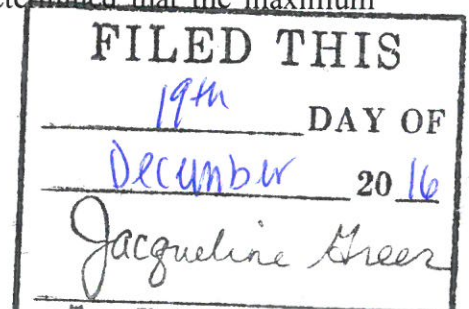 etermined that the maximum
FILED THIS
19th DAY OF
December 20 16
Jacqueline Greer